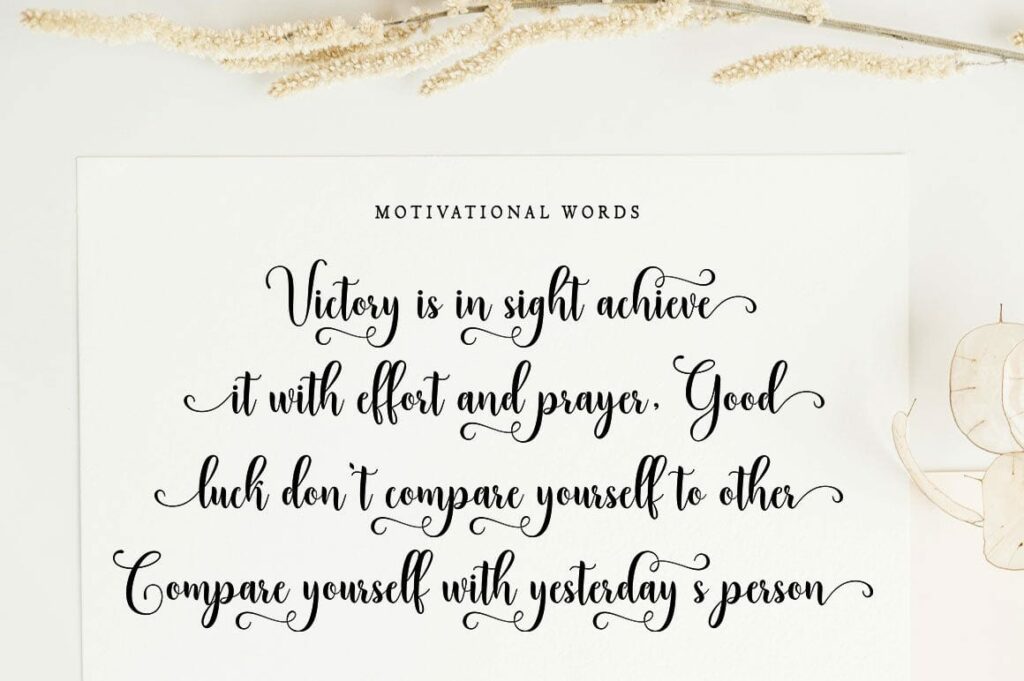 MOTIVATIONAL WORDS
Victory is in sight achieve
it with effort and prayer, Good
luck don't compare yourself to other
Compare yourself with yesterday s person